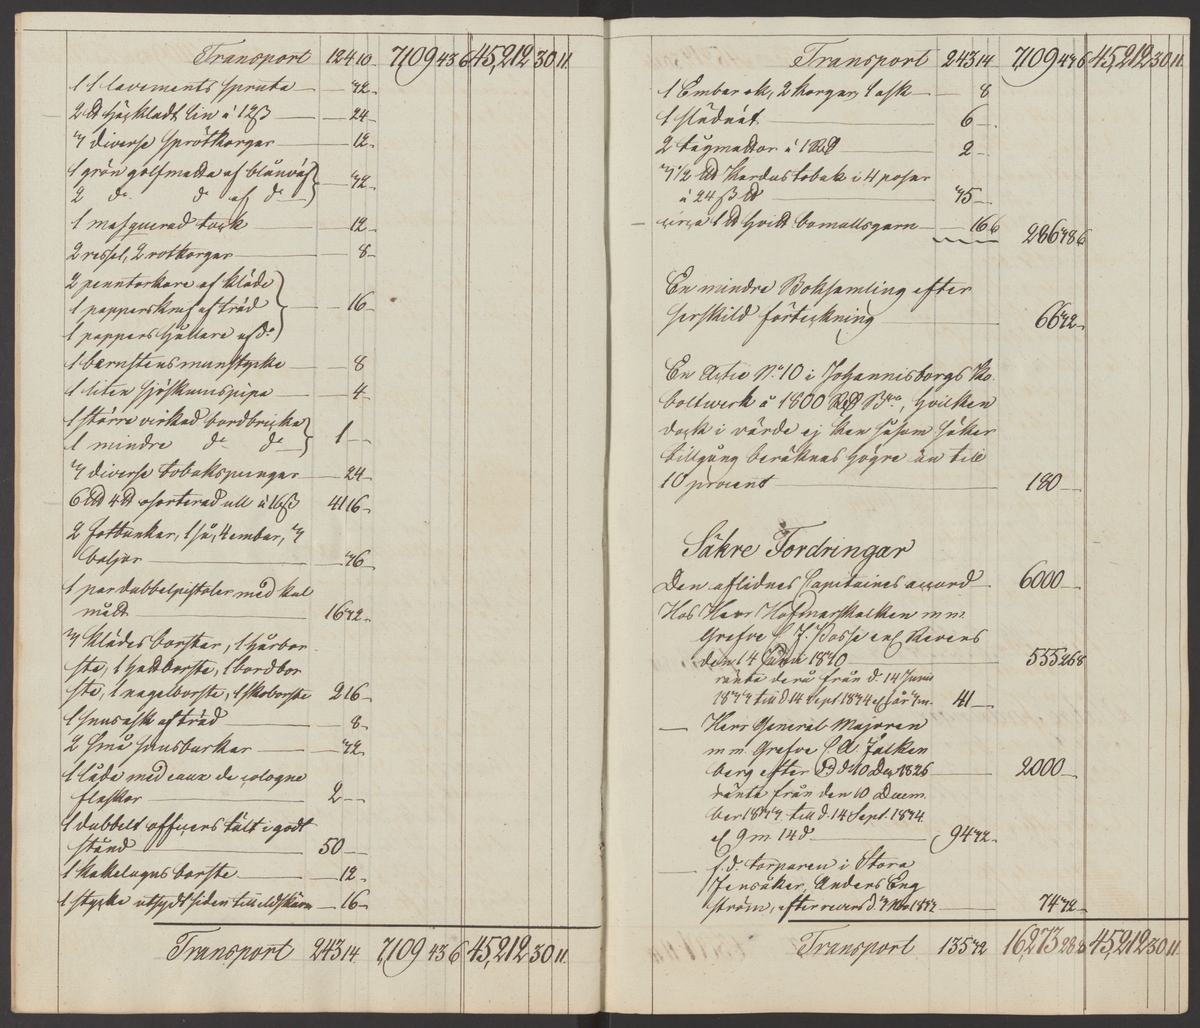 Transport 124 10 7,109 43 6 45,212 30 11.
1 lavements spruta 32.
2 ℔ häckladt lin á 12ß 24.
3 diverse sprötkorgar 12.
1 grön golfmatta af blånväf
2 do do af do 32.
1 masquerad 12.
2 rissel, 2 rotkorgar 8.
2 penntorkare af kläde
1 pappersknif af träd 16.
1 pappershållare af do
1 bernstens munstycke 8
1 liten sjöskumspipa 4.
1 större virkad bordbricka
1 mindre do do 1
3 diverse tobakspungar 24.
6 ℔ 4 ℔ sorterad ull á 16ß 41 16.
2 fotbunkar, 1 så, 4 embar, 3
baljor 36.
1 par dubbelpistoler med kul
mått 16 32.
3 klädesborstar, 1 hårbor
ste, 1 hattborste, 1 bordbor
ste, 1 nagelborste, 1 skoborste 2 16
1 snusask af träd 8.
2 små snusburkar 32.
1 låda med eaux de cologne
flaskor 2
1 dubbelt officers tält i godt
stånd 50
1 kakelugns borste 12.
1 stycke utsydt siden till eldskärm 16.
Transport 243 14 7,109 43 6 45,212 30 11.
Transport 243 14 7,109 43 6 45,212 30 11.
1 Embar ok, 2 korgar, 1 ask 8
1 slädnät 6
2 tågmattor á 1 Rd 2
3 1/2 ℔ Kardustobak i 4 posar
á 24 ß ℔ 35
circa 1 ℔ hvidt bomullsgarn 16 6 286 38 6
En mindre Boksamling efter
serskild förteckning 66 32
En Actie No 10 i Johannisborgs Ko
boltwerk á 1800 Rd Bco, hvilken
dock i värde ej kan såsom säker
tillgång beräknas högre än till
10 procent 180
Säkre Fordringar
Den aflidnes Capitaines accord 6000
Hos Herr Hofmarskalken m m
Grefve C J. Posse enl Revers
den 14 Juni 1830 555 26 8
ränta derå från d. 14 Junii
1833 till d 14 Sept 1834 el. 1 år 3 m. 41
Herr General Majoren
m m. Grefve C. A. Falken
berg efter d 10 Dec 1826 2000
ränta från den 10 Decem
ber 1833 till d. 14 Sept. 1834.
el 9 m 14 d 94 32.
f. d. torparen i Stora
Stensåker, Anders Eng
ström, efter revers d. 3 Nov 1832 74 32
Transport 135 32 16,273 28 8 45,212 30 11.